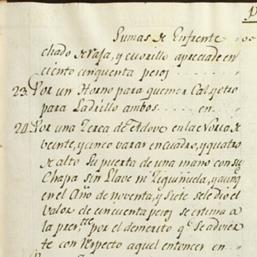 Sumas de Enfrente
chado de Raja, y quarillo apreciado en
ciento cinquenta pesos
23. Por un Horno para quemar Cal, y otro
para Ladrillo ambos en
24. Por una Cerca de Adove en la Noria de
veinte, y cinco varas en cuadro, y quatro
de alto Su puerta de una mano con su
Chapa sin Llave ni y aunq.
en el Año de noventa, y Siete se le dio el
valor de cincuenta pesos se estima a
la pres.te por el demerito q.e Se advier
te con respecto aquel entonces en